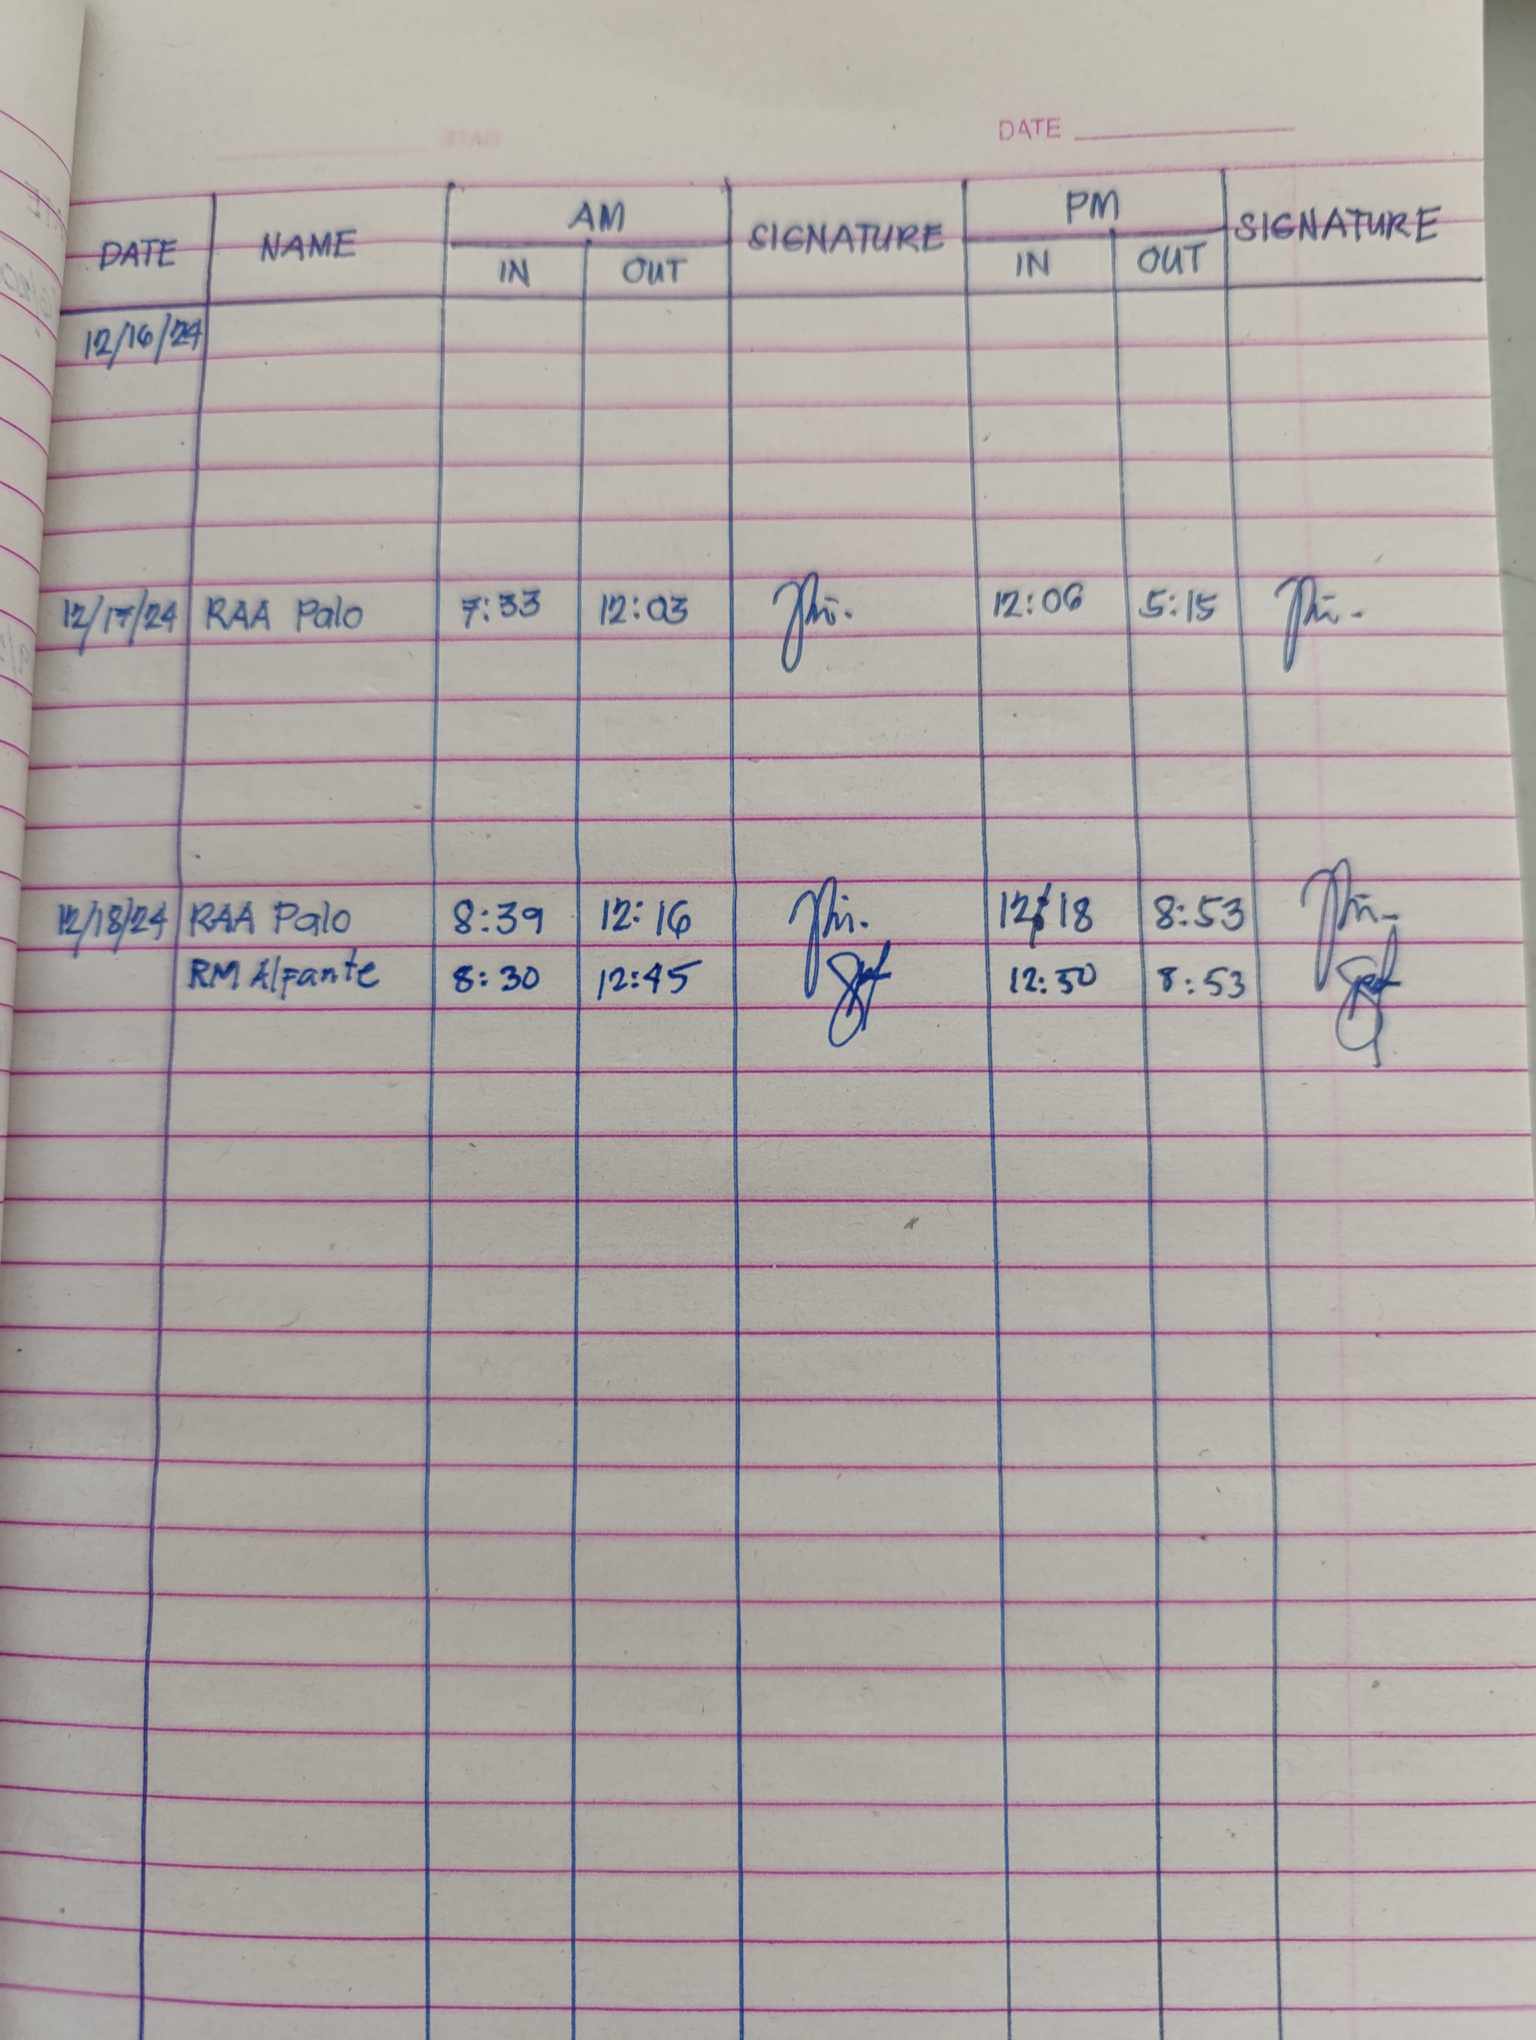 DATE
DATE NAME AM SIGNATURE PM SIGNATURE
IN OUT IN OUT
12/16/24
12/17/24 RAA Palo 7:33 12:03 12:06 5:15
12/18/24 RAA Palo 8:39 12:16 12:18 8:53
RM Alfante 8:30 12:45 12:50 8:53